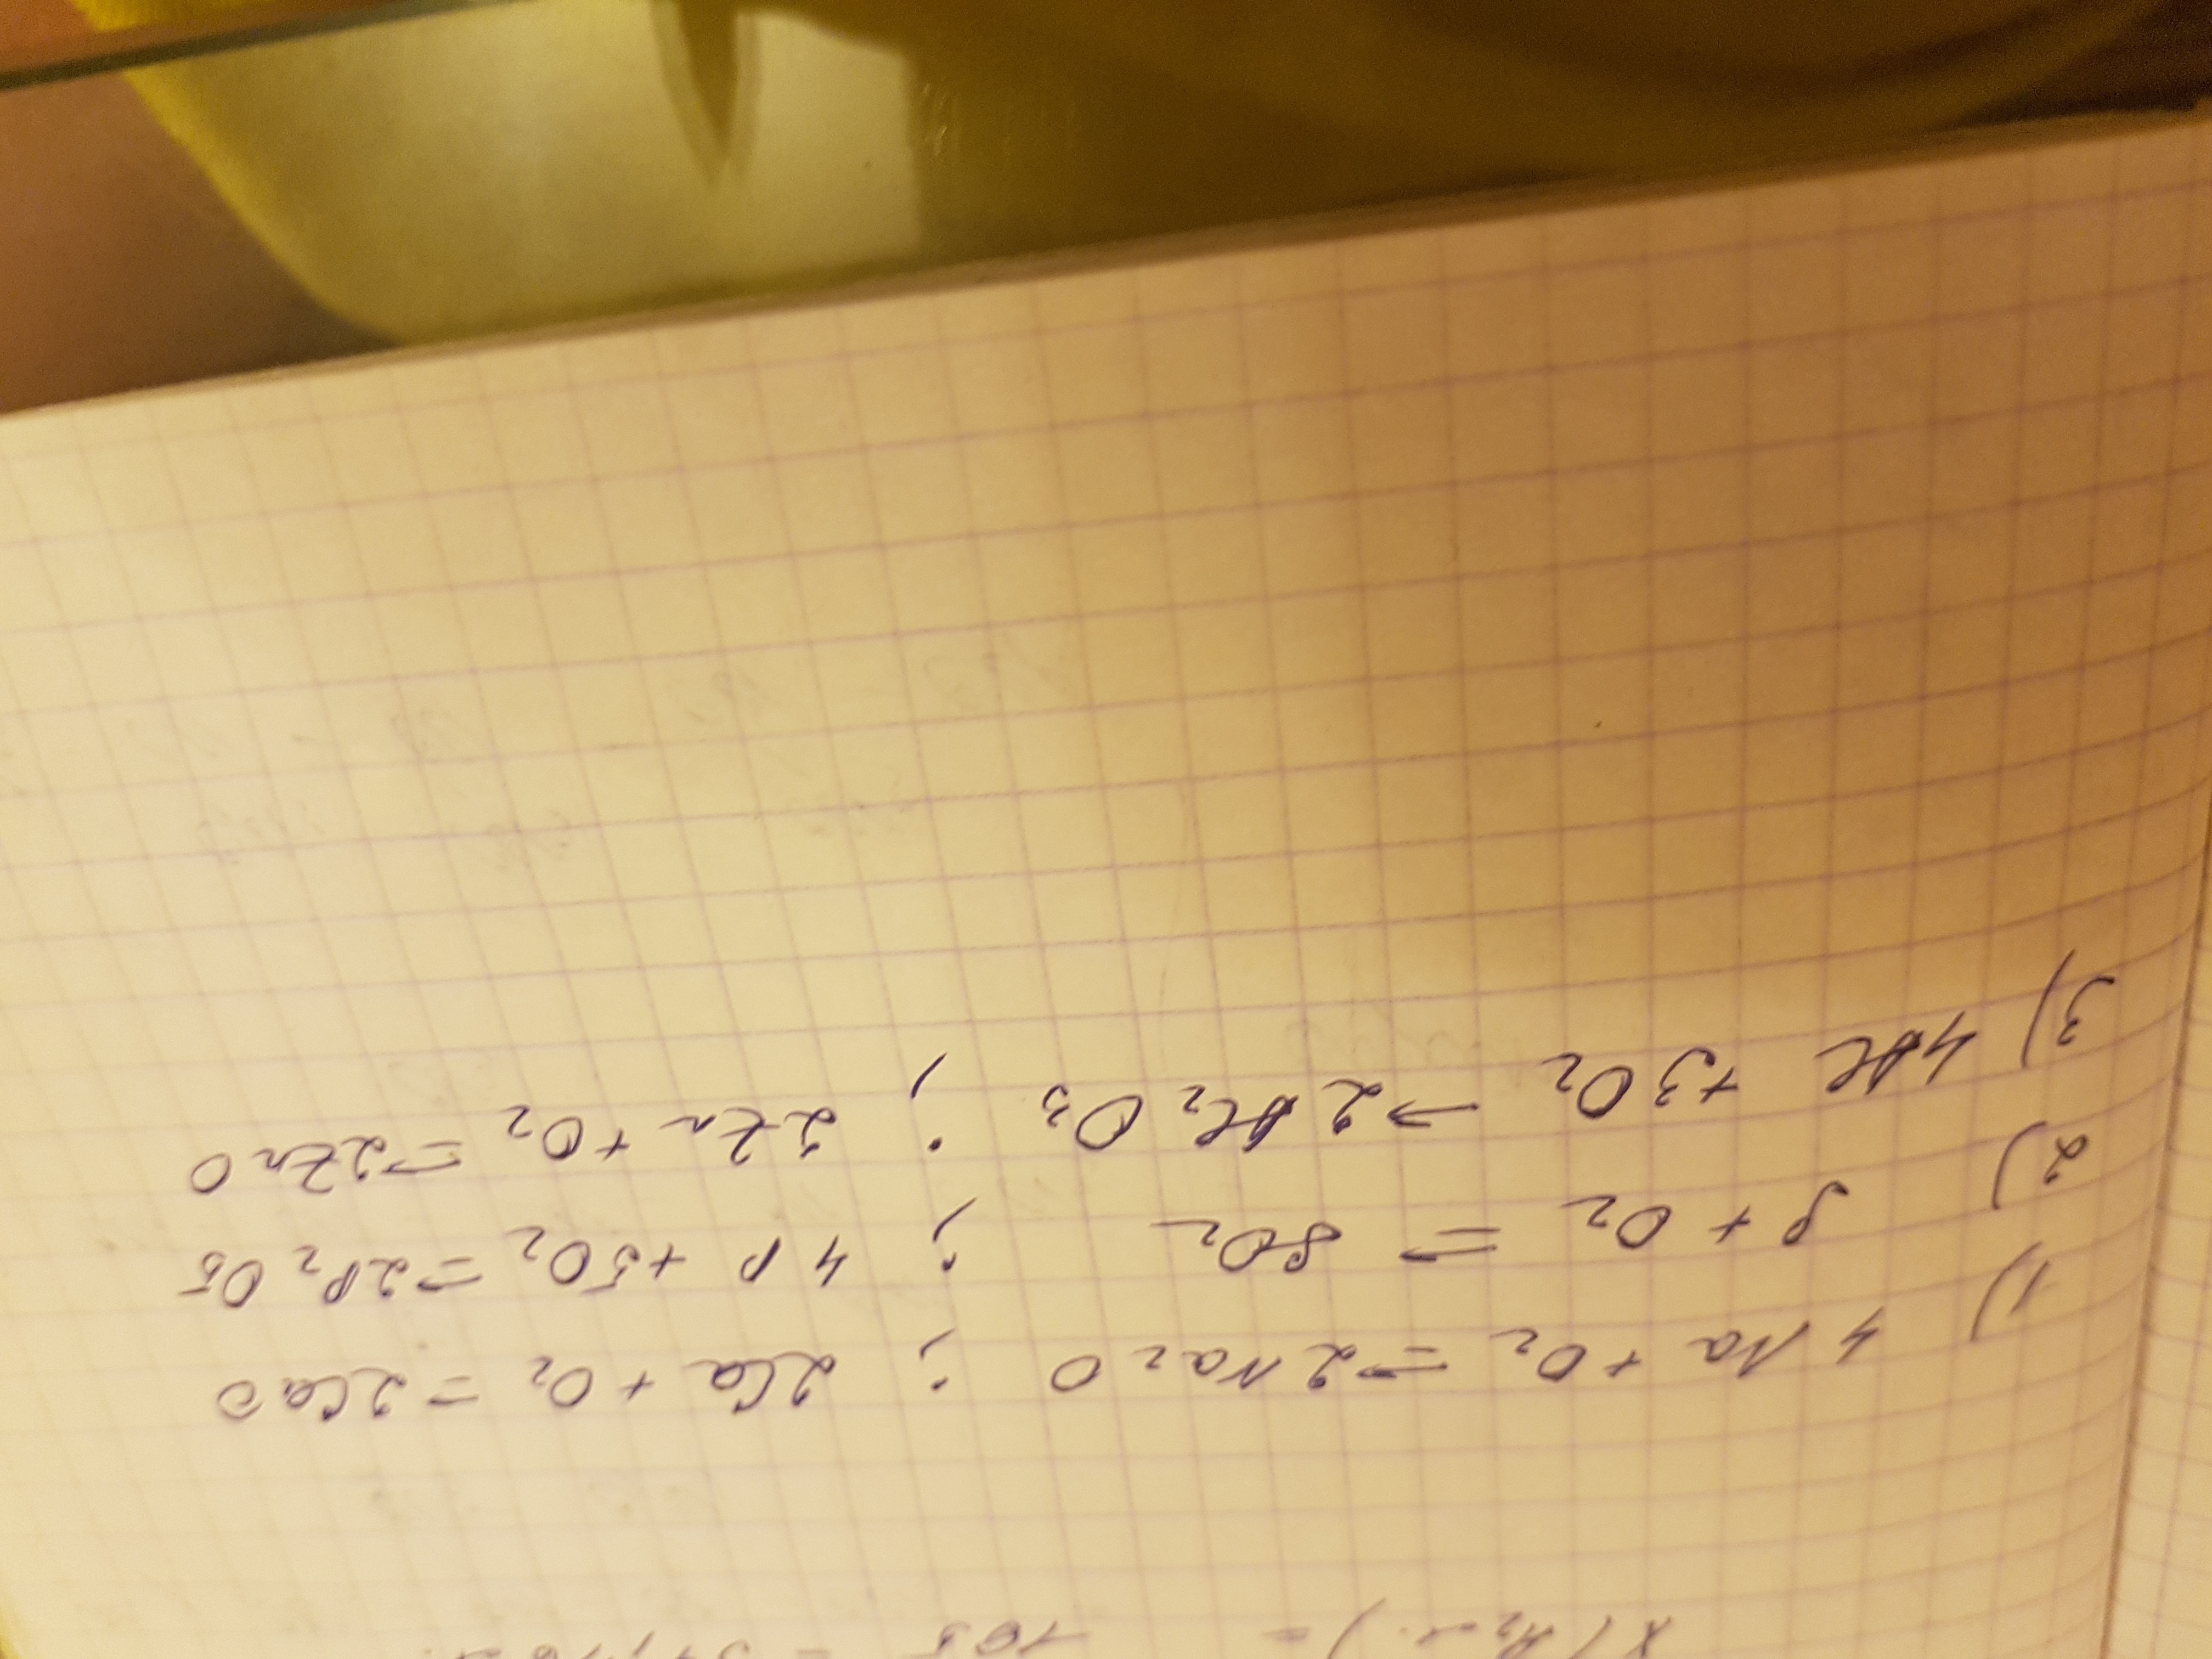 1) 4Na + O₂ = 2Na₂O ; 2Ca + O₂ = 2CaO
2) S + O₂ = SO₂ ; 4P + 5O₂ = 2P₂O₅
3) 4Al + 3O₂ → 2Al₂O₃ ; 2Zn + O₂ = 2ZnO